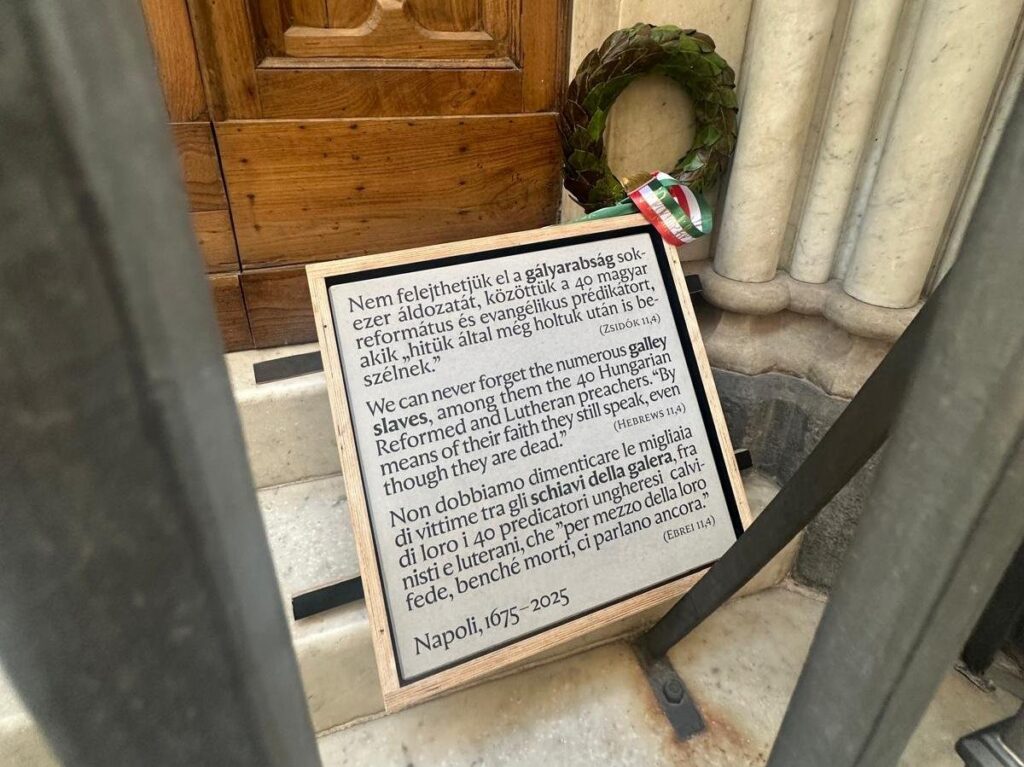 Nem felejthetjük el a gályarabság sok-
ezer áldozatát, közöttük a 40 magyar
református és evangélikus prédikátort,
akik „hitük által még holtuk után is be-
szélnek.”
(ZSIDÓK 11,4)
We can never forget the numerous galley
slaves, among them the 40 Hungarian
Reformed and Lutheran preachers. “By
means of their faith they still speak, even
though they are dead.”
(HEBREWS 11,4)
Non dobbiamo dimenticare le migliaia
di vittime tra gli schiavi della galera, fra
di loro i 40 predicatori ungheresi calvi-
nisti e luterani, che ”per mezzo della loro
fede, benché morti, ci parlano ancora.”
(EBREI 11,4)
Napoli, 1675–2025